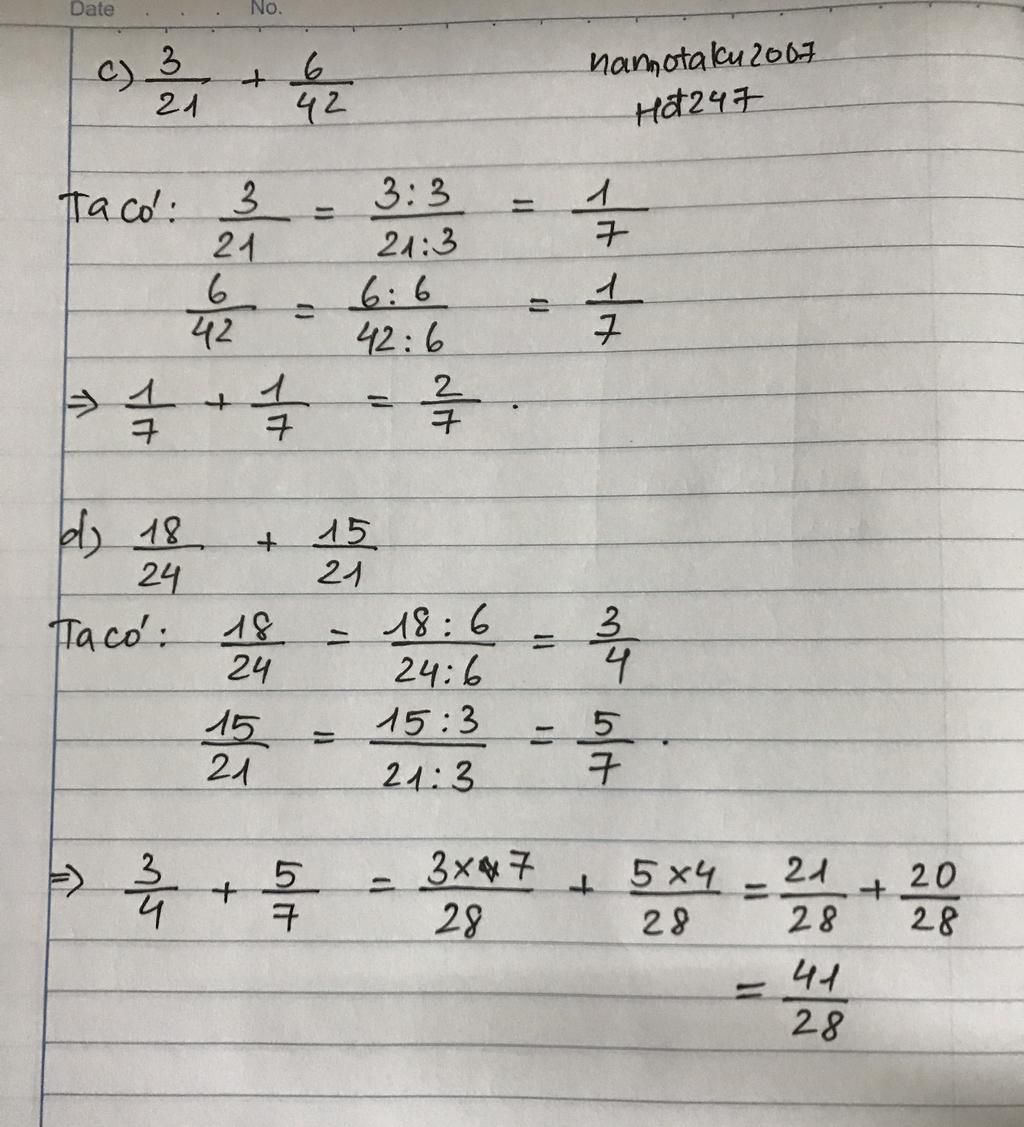 Date . . . No.
c) 3/21 + 6/42 namotaku2007
Hđ247
Ta có: 3/21 = 3:3/21:3 = 1/7
6/42 = 6:6/42:6 = 1/7
⇒ 1/7 + 1/7 = 2/7 .
d) 18/24 + 15/21
Ta có: 18/24 = 18:6/24:6 = 3/4
15/21 = 15:3/21:3 = 5/7 .
⇒ 3/4 + 5/7 = 3×7/28 + 5×4/28 = 21/28 + 20/28
= 41/28